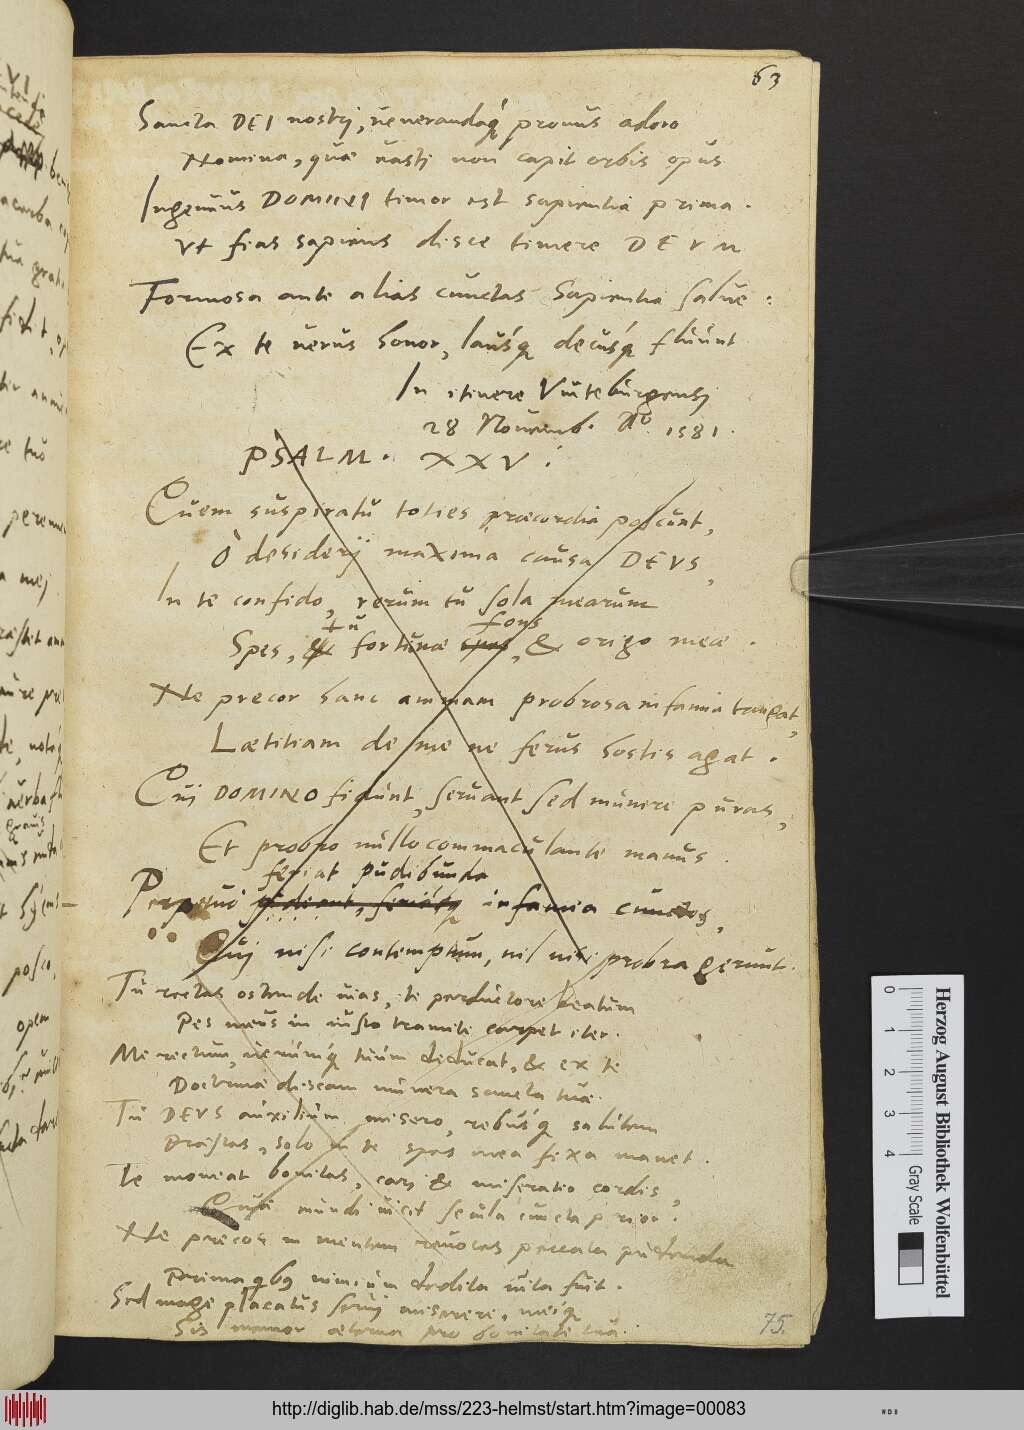 63
Sancta DEI nostrj, venerandaq́ pronus adoro
Nomina, quæ vastj non capit orbis opus
Ingenuus DOMINI timor est sapientia prima.
Vt fias sapiens disce timere DEVM
Formosa ante alias cunctas Sapientia salue:
Ex te verus honor, lausq́ decusq́ fluunt
In itinere Vuitebergensj
28 Nouemb. Aº. 1581.
PSALM. XXV.
Quem suspiratu toties præcordia poscunt,
O desiderij maxima causa DEVS,
In te confido, rerum tu sola mearum
tu fons
Spes, & fortunæ spes, & origo meæ.
Ne precor hanc animam probrosa infamia tangat,
Lætitiam de me ne ferus hostis agat.
Cuj DOMINO fidunt, seruant sed munere puras,
Et probro nullo commaculante manus.
feriat pudibunda
Perpetuò infamia cunctos,
Quj nisi contemptum, nil nisi probra gerunt.
Tu rectas ostende uias, te perductore beatum
Pes meus in iusto tramite carpet iter.
Me rectum, uerumq́ tuum deducat, & ex te
Doctrinæ discam munera sancta tuæ.
Tu DEVS auxilium misero, rebusq́ salutem
Præstas, solo in te spes mea fixa manet.
Te moueat bonitas, carj & miseratio cordis,
Quæ mundi uicit secula cuncta prior.
Ne precor in mentem reuoces peccata pudenda
Prima qbg nimium dedita uita fuit.
Sed mage placatus seruj miserere, meiq́
Sis memor æterna pro bonitate tua.
75.
Herzog August Bibliothek Wolfenbüttel
Gray Scale
0 1 2 3 4
http://diglib.hab.de/mss/223-helmst/start.htm?image=00083